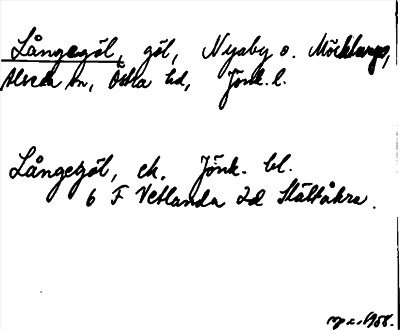 Långegöl, göl, Nysby o. Möcklarp,
Alseda sn, Östra hd, Jönk. l.
Långegöl, ek. Jönk. bl.
6 F Vetlanda 2d Slättåkra.
1958.